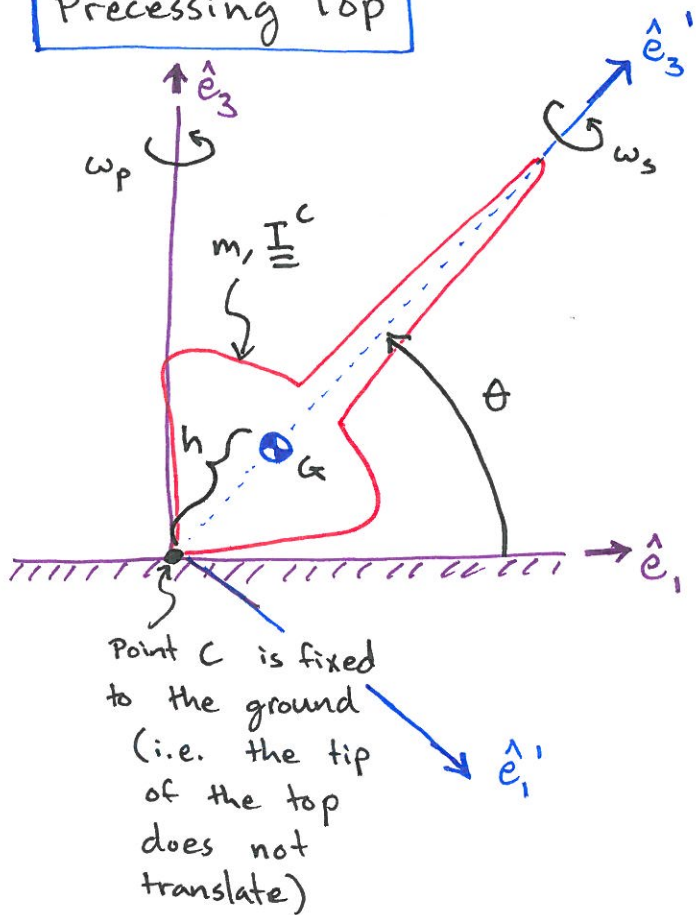 Precessing Top
ê₃
ê₃'
ωₚ
ωₛ
m, I̳ᶜ
θ
h
G
ê₁
Point C is fixed
to the ground
(i.e. the tip
of the top
does not
translate)
ê₁'